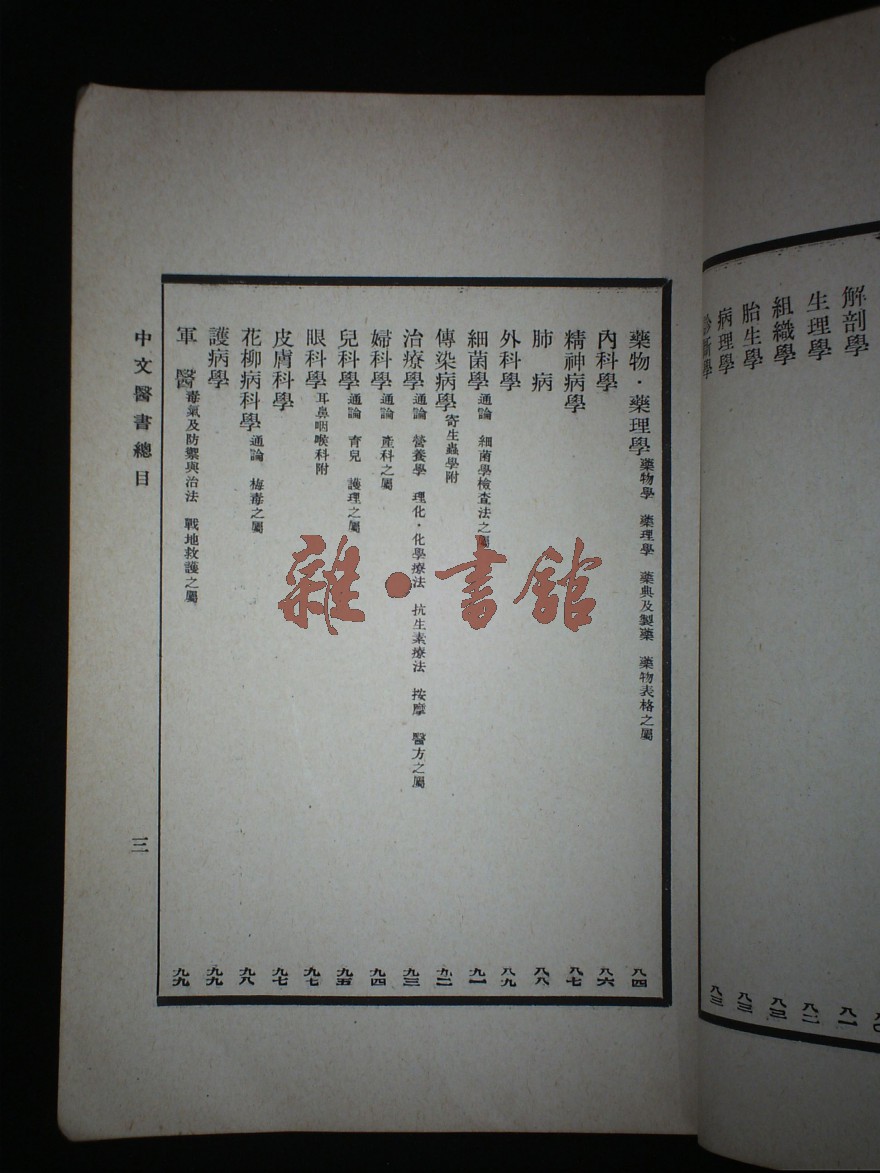 解剖學
生理學 八一
組織學 八二
胎生學 八三
病理學 八三
診斷學 八三
藥物・藥理學 藥物學 藥理學 藥典及製藥 藥物表格之屬 八四
內科學 八六
精神病學 八七
肺病 八八
外科學 八九
細菌學 通論 細菌學檢查法之屬 九一
傳染病學 寄生蟲學附 九二
治療學 通論 營養學 理化・化學療法 抗生素療法 按摩 醫方之屬 九三
婦科學 通論 產科之屬 九四
兒科學 通論 育兒 護理之屬 九五
眼科學 耳鼻咽喉科附 九七
皮膚科學 九七
花柳病科學 通論 梅毒之屬 九八
護病學 九九
軍醫 毒氣及防禦與治法 戰地救護之屬 九九
中文醫書總目
三
雜・書館